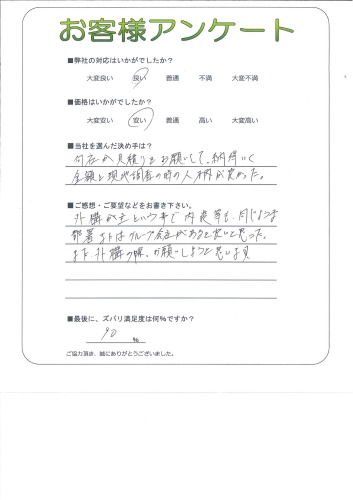 お客様アンケート
■弊社の対応はいかがでしたか?
大変良い 良い 普通 不満 大変不満
■価格はいかがでしたか?
大変安い 安い 普通 高い 大変高い
■当社を選んだ決め手は?
何社か見積りをお願いして、納得いく
金額と現地調査の時の人柄が良かった。
■ご感想・ご要望などをお書き下さい。
外構が主という事で内装等も同じような
部署またはグループ会社があると良いと思った。
また外構の際、お願いしようと思います
■最後に、ズバリ満足度は何%ですか?
90 %
ご協力頂き、誠にありがとうございました。